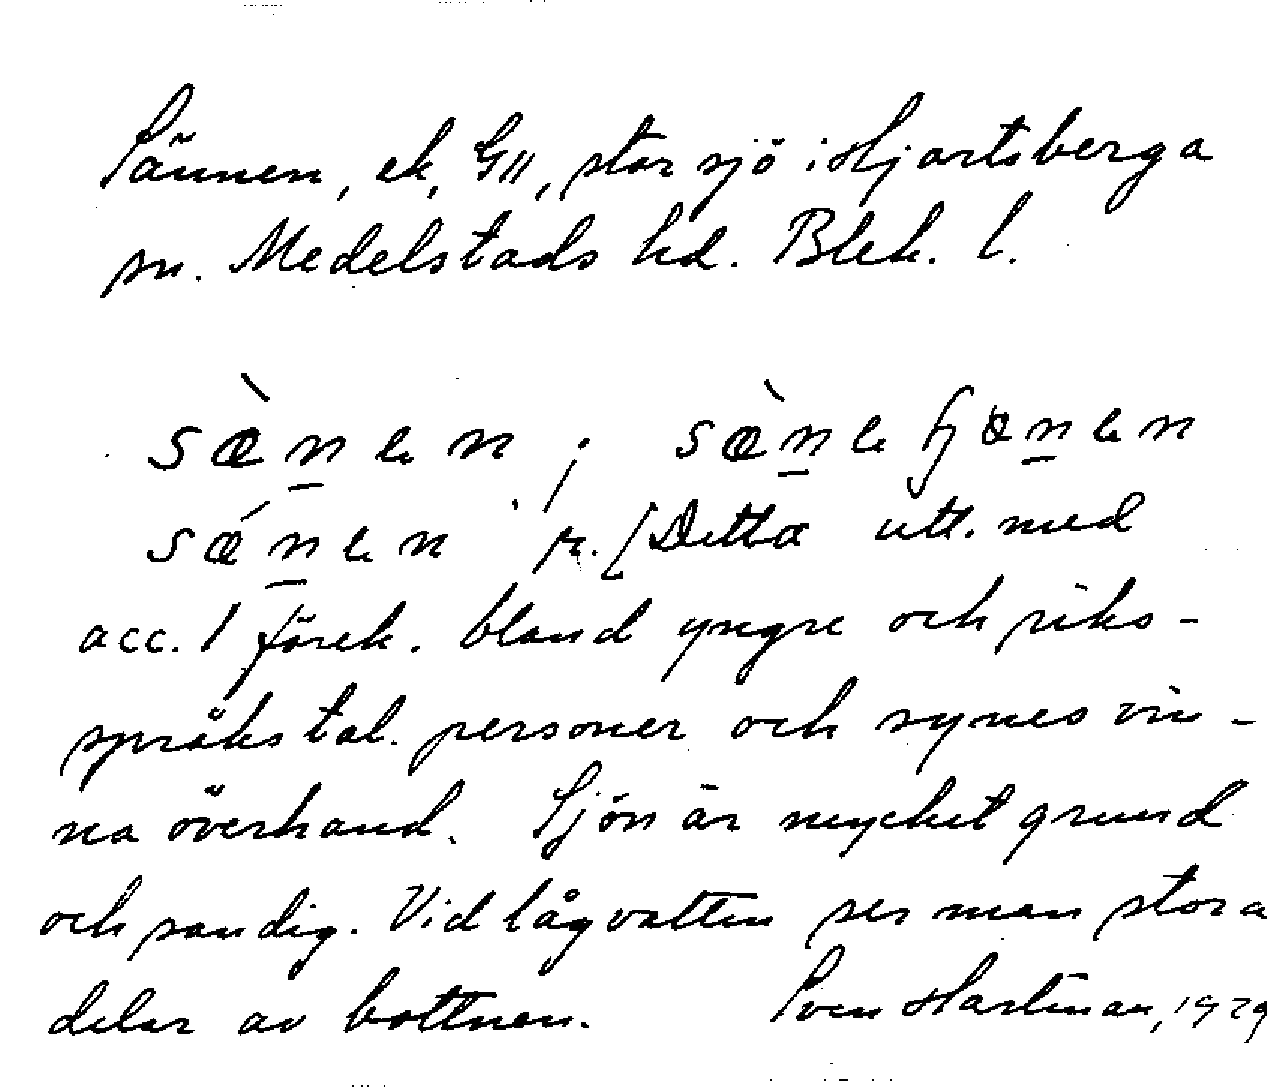 Sännen, ek. G11, stor sjö i Hjortsberga
sn. Medelstads hd. Blek. l.
sæ̀nen ; sæ̀nefjænen
sǽnen r. [Detta utt. med
acc. 1 förek. bland yngre och riks-
språkstal. personer och synes vin-
na överhand. Sjön är mycket grund
och sandig. Vid lågvatten ser man stora
delar av bottnen. Sven Hartman, 1929